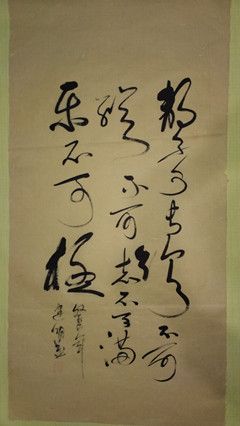 敖不可长欲不可
纵不可志不可满
乐不可极